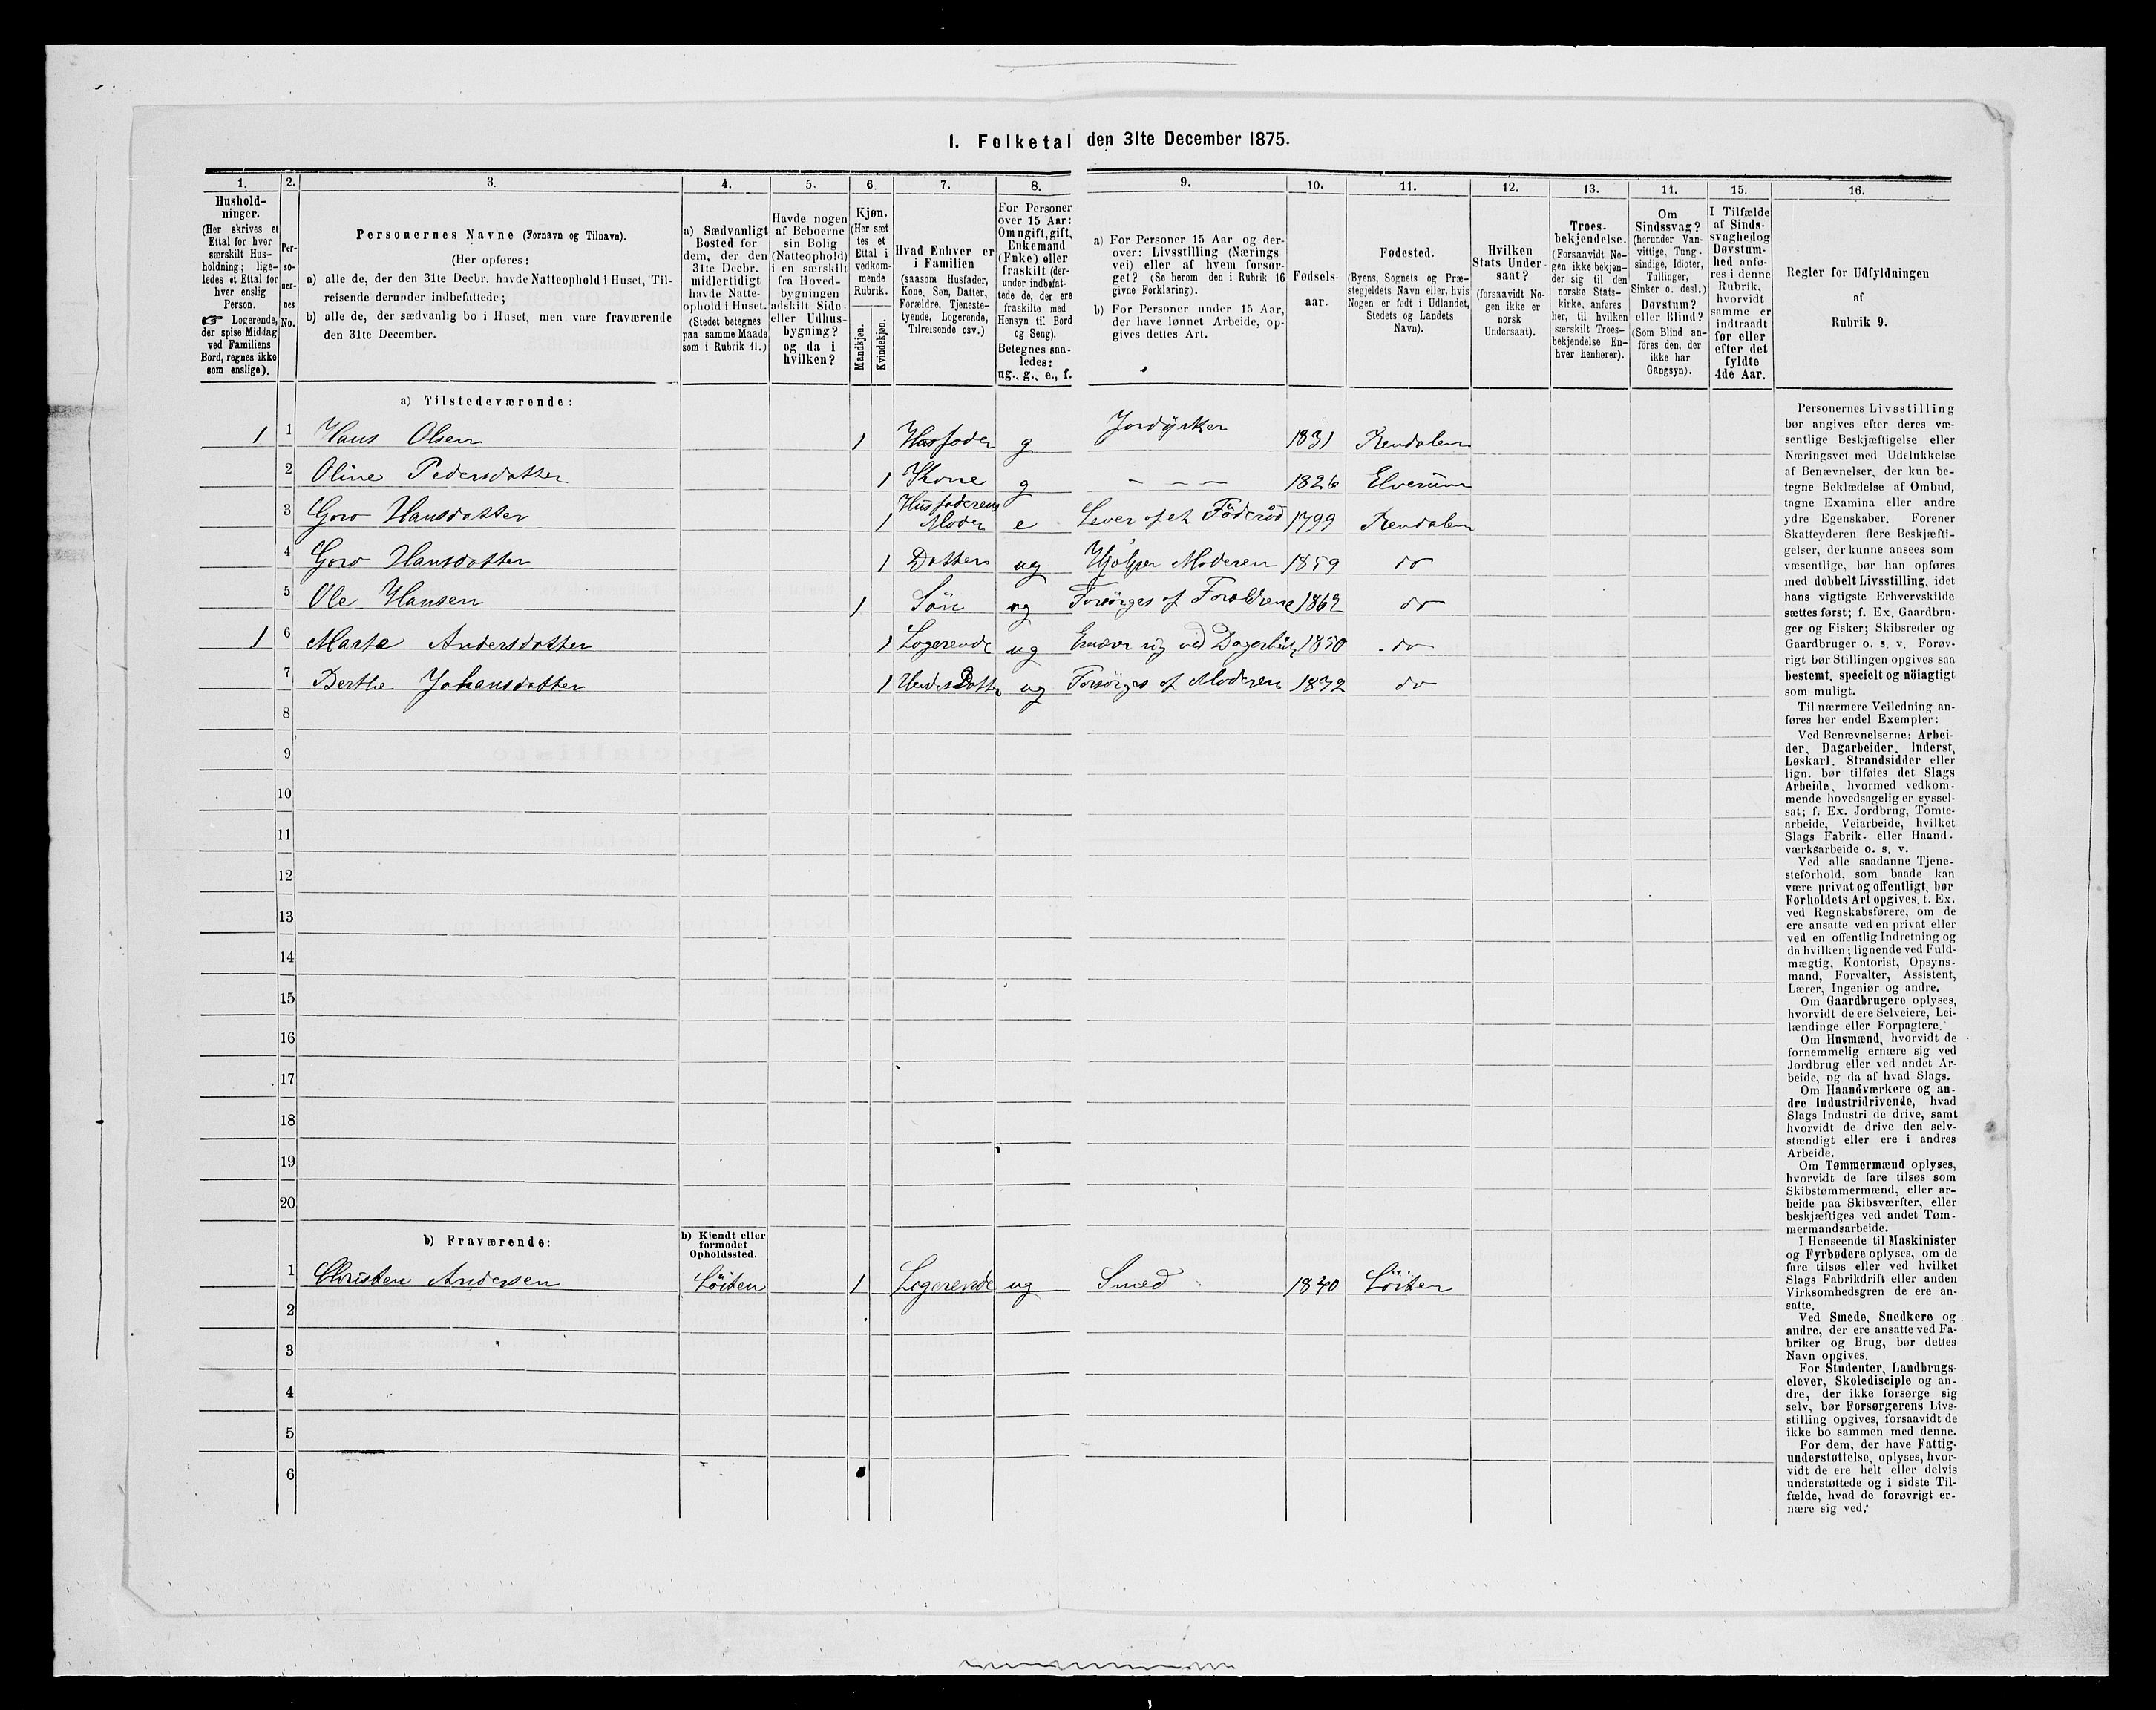 I. Folketal den 31te December 1875.
1. 2. 3. 4. 5. 6. 7. 8. 9. 10. 11. 12. 13. 14. 15. 16.
Hushold-
ninger.
(Her skrives et
Ettal for hver
særskilt Hus-
holdning; lige-
ledes et Ettal for
hver enslig
Person.
☞ Logerende,
der spise Middag
ved Familiens
Bord, regnes ikke
som enslige).
Per-
so-
ner-
nes
No.
Personernes Navne (Fornavn og Tilnavn).
(Her opføres:
a) alle de, der den 31te Decbr. havde Natteophold i Huset, Til-
reisende derunder indbefattede;
b) alle de, der sædvanlig bo i Huset, men vare fraværende
den 31te December.
a) Sædvanligt
Bosted for
dem, der den
31te Decbr.
midlertidigt
havde Natte-
ophold i Huset.
(Stedet betegnes
paa samme Maade
som i Rubrik 11.)
Havde nogen
af Beboerne
sin Bolig
(Natteophold)
i en særskilt
fra Hoved-
bygningen
adskilt Side-
eller Udhus-
bygning?
og da i
hvilken?
Kjøn.
(Her sæt
tes et
Ettal i
vedkom-
mende
Rubrik.
Mandkjøn.
Kvindekjøn.
Hvad Enhver er
i Familien
(saasom Husfader,
Kone, Søn, Datter,
Forældre, Tjeneste-
tyende, Logerende,
Tilreisende osv.)
For Personer
over 15 Aar:
Om ugift, gift,
Enkemand
(Enke) eller
fraskilt (der-
under indbefat-
tede de, der ere
fraskilte med
Hensyn til Bord
og Seng).
Betegnes saa-
ledes:
ug., g., e., f.
a) For Personer 15 Aar og der-
over: Livsstilling (Nærings
vei) eller af hvem forsør-
get? (Se herom den i Rubrik 16
givne Forklaring).
b) For Personer under 15 Aar,
der have lønnet Arbeide, op-
gives dettes Art.
Fødsels-
aar.
Fødested.
(Byens, Sognets og Præ-
stegjeldets Navn eller, hvis
Nogen er født i Udlandet,
Stedets og Landets
Navn).
Hvilken
Stats Under-
saat?
(forsaavidt No-
gen ikke er
norsk
Undersaat).
Troes-
bekjendelse.
(Forsaavidt No-
gen ikke bekjen-
der sig til den
norske Stats-
kirke, anføres
her, til hvilken
særskilt Troes-
bekjendelse En-
hver henhører).
Om
Sindssvag?
(herunder Van-
vittige, Tung-
sindige, Idioter,
Tullinger,
Sinker o. desl.)
Døvstum?
eller Blind?
(Som Blind an-
föres den, der
ikke har
Gangsyn).
I Tilfælde
af Sinds-
svaghed og
Døvstum-
hed anfø-
res i denne
Rubrik,
hvorvidt
samme er
indtraadt
før eller
efter det
fyldte
4de Aar.
Regler for Udfyldningen
af
Rubrik 9.
a) Tilstedeværende:
1 1 Hans Olsen 1 Husfader g Jordÿrker 1831 Rendalen
2 Oline Pedersdatter 1 Kone g — — — 1826 Elverum
3 Goro Hansdatter 1 Husfaderens Moder e Lever af et Föderåd 1799 Rendalen
4 Goro Hansdatter 1 Datter ug Hjelper Moderen 1859 do
5 Ole Hansen 1 Sön ug Forsörges af Forældrene 1862 do
1 6 Marte Andersdatter 1 Logerende ug Ernærer sig ved 1850 do
7 Berthe Johansdatter 1 Hendes Datter ug Forsörges af Moderen 1872 do
8
9
10
11
12
13
14
15
16
17
18
19
20
b) Fraværende:
b) Kjendt eller
formodet
Opholdssted.
1 Christen Andersen Löiten 1 Logerende ug Smed 1840 Löiten
2
3
4
5
6
Personernes Livsstilling
bør angives efter deres væ-
sentlige Beskjæftigelse eller
Næringsvei med Udelukkelse
af Benævnelser, der kun be-
tegne Beklædelse af Ombud,
tagne Examina eller andre
ydre Egenskaber. Forener
Skatteyderen flere Beskjæfti-
gelser, der kunne ansees som
væsentlige, bør han opføres
med dobbelt Livsstilling, idet
hans vigtigste Erhvervskilde
sættes først; f. Ex. Gaardbru-
ger og Fisker; Skibsreder og
Gaardbruger o. s. v. Forøv-
rigt bør Stillingen opgives saa
bestemt, specielt og nöiagtigt
som muligt.
Til nærmere Veiledning an-
føres her endel Exempler:
Ved Benævnelserne: Arbei-
der, Dagarbeider, Inderst,
Løskarl, Strandsidder eller
lign. bør tilføies det Slags
Arbeide, hvormed vedkom-
mende hovedsagelig er syssel-
sat; f. Ex. Jordbrug, Tomte-
arbeide, Veiarbeide, hvilket
Slags Fabrik- eller Haand-
værksarbeide o. s. v.
Ved alle saadanne Tjene-
steforhold, som baade kan
være privat og offentligt, bør
Forholdets Art opgives, t. Ex.
ved Regnskabsførere, om de
ere ansatte ved en privat eller
ved en offentlig Indretning og
da hvilken; lignende ved Fuld-
mægtig, Kontorist, Opsyns-
mand, Forvalter, Assistent,
Lærer, Ingeniør og andre.
Om Gaardbrugere oplyses,
hvorvidt de ere Selveiere, Lei-
lændinge eller Forpagtere.
Om Husmænd, hvorvidt de
fornemmelig ernære sig ved
Jordbrug eller ved andet Ar-
beide, og da af hvad Slags.
Om Haandværkere og an-
dre Industridrivende, hvad
Slags Industri de drive, samt
hvorvidt de drive den selv-
stændigt eller ere i andres
Arbeide.
Om Tømmermænd oplyses,
hvorvidt de fare tilsøs som
Skibstømmermænd, eller ar-
beide paa Skibsværfter, eller
beskjæftiges ved andet Tøm-
mermandsarbeide.
I Henseende til Maskinister
og Fyrbødere oplyses, om de
fare tilsøs eller ved hvilket
Slags Fabrikdrift eller anden
Virksomhedsgren de ere an-
satte.
Ved Smede, Snedkere og
andre, der ere ansatte ved Fa-
briker og Brug, bør dettes
Navn opgives.
For Studenter, Landbrugs-
elever, Skoledisciple og an-
dre, der ikke forsørge sig
selv, bør Forsørgerens Livs-
stilling opgives, forsaavidt de
ikke bo sammen med denne.
For dem, der have Fattig-
understøttelse, oplyses, hvor-
vidt de ere helt eller delvis
understøttede og i sidste Til-
fælde, hvad de forøvrigt er-
nære sig ved.